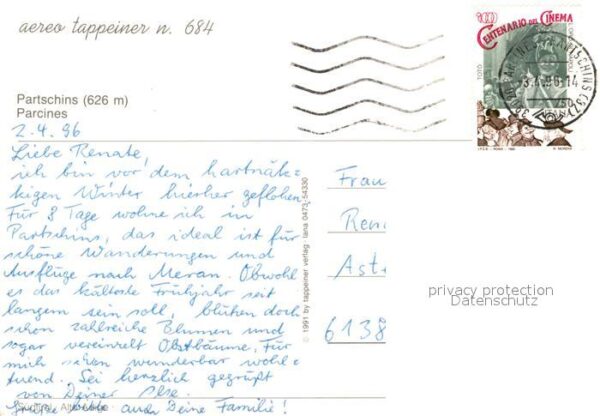 aereo tappeiner n. 684
100 CENTENARIO DEL CINEMA
TOTÒ
750
Partschins (626 m)
Parcines
2.4.96
Liebe Renate,
ich bin vor dem hartnäk=
kigen Winter hierher geflohen.
Für 8 Tage wohne ich in
Partschins, das ideal ist für
schöne Wanderungen und
Ausflüge nach Meran. Obwohl
es das kälteste Frühjahr seit
langem sein soll, blühen doch
schon zahlreiche Blumen und
sogar vereinzelt Obstbäume. Für
mich schon wunderbar wohl=
tuend. Sei herzlich gegrüßt
von Deiner Ilse.
Grüße bitte auch Deine Familie!
© 1991 by tappeiner verlag · lana 0473-54330
Frau
Ren
Ast
6138
privacy protection
Datenschutz